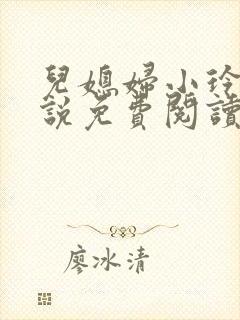 兒媳婦小玲
說免費閱讀
廖冰清